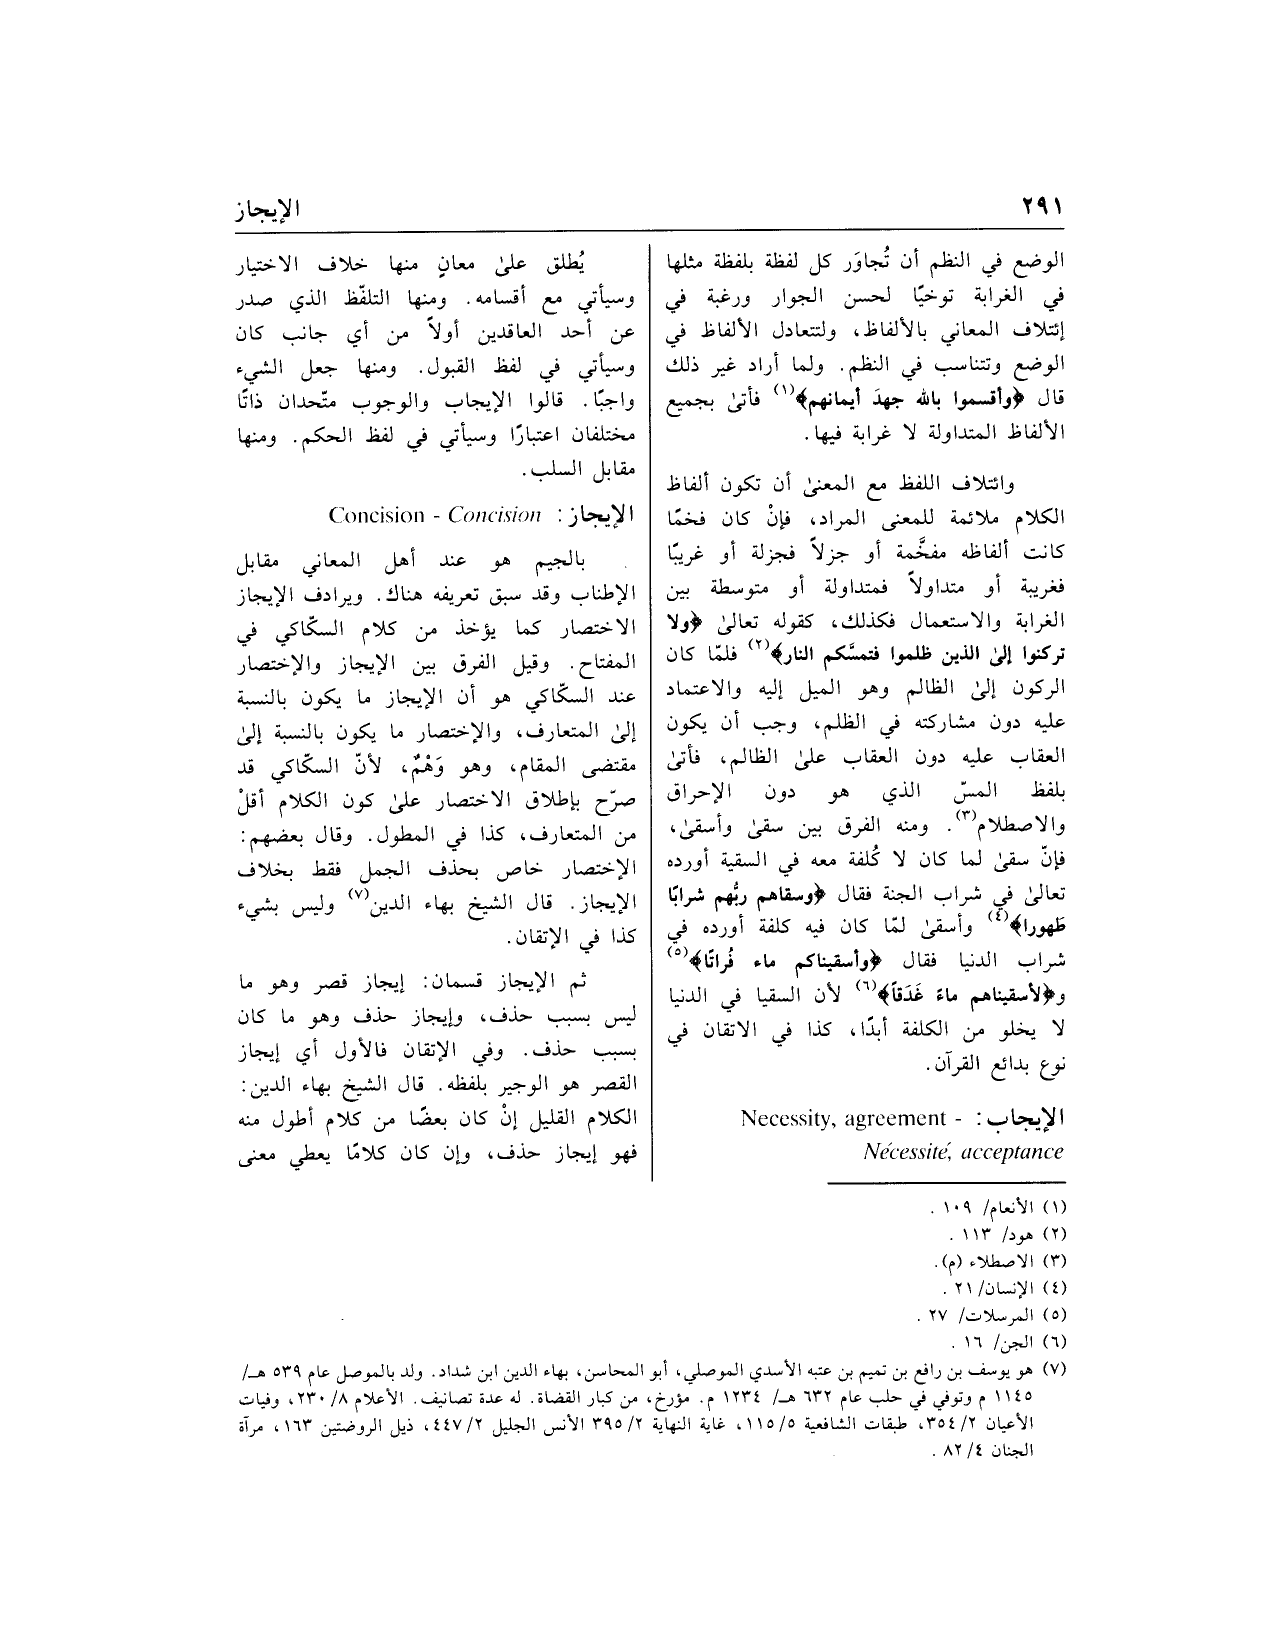 ٢٩١
الإيجاز
الوضع في النظم أن تُجاوَر كل لفظة بلفظة مثلها
في الغرابة توخيًا لحسن الجوار ورغبة في
إئتلاف المعاني بالألفاظ، ولتتعادل الألفاظ في
الوضع وتتناسب في النظم. ولما أراد غير ذلك
قال ﴿وأقسموا بالله جهدَ أيمانهم﴾(١) فأتىٰ بجميع
الألفاظ المتداولة لا غرابة فيها.
وائتلاف اللفظ مع المعنىٰ أن تكون ألفاظ
الكلام ملائمة للمعنى المراد، فإنْ كان فخمًا
كانت ألفاظه مفخَّمة أو جزلاً فجزلة أو غريبًا
فغريبة أو متداولاً فمتداولة أو متوسطة بين
الغرابة والاستعمال فكذلك، كقوله تعالىٰ ﴿ولا
تركنوا إلىٰ الذين ظلموا فتمسَّكم النار﴾(٢) فلمّا كان
الركون إلىٰ الظالم وهو الميل إليه والاعتماد
عليه دون مشاركته في الظلم، وجب أن يكون
العقاب عليه دون العقاب علىٰ الظالم، فأتىٰ
بلفظ المسّ الذي هو دون الإحراق
والاصطلام(٣). ومنه الفرق بين سقىٰ وأسقىٰ،
فإنّ سقىٰ لما كان لا كُلفة معه في السقية أورده
تعالىٰ في شراب الجنة فقال ﴿وسقاهم ربُّهم شرابًا
طَهورا﴾(٤) وأسقىٰ لمّا كان فيه كلفة أورده في
شراب الدنيا فقال ﴿وأسقيناكم ماء فُراتًا﴾(٥)
و﴿لأسقيناهم ماءً غَدَقاً﴾(٦) لأن السقيا في الدنيا
لا يخلو من الكلفة أبدًا، كذا في الاتقان في
نوع بدائع القرآن.
الإيجاب: Necessity, agreement -
Nécessité, acceptance
يُطلق علىٰ معانٍ منها خلاف الاختيار
وسيأتي مع أقسامه. ومنها التلفّظ الذي صدر
عن أحد العاقدين أولاً من أي جانب كان
وسيأتي في لفظ القبول. ومنها جعل الشيء
واجبًا. قالوا الإيجاب والوجوب متّحدان ذاتًا
مختلفان اعتبارًا وسيأتي في لفظ الحكم. ومنها
مقابل السلب.
الإيجاز: Concision - Concision
بالجيم هو عند أهل المعاني مقابل
الإطناب وقد سبق تعريفه هناك. ويرادف الإيجاز
الاختصار كما يؤخذ من كلام السكّاكي في
المفتاح. وقيل الفرق بين الإيجاز والإختصار
عند السكّاكي هو أن الإيجاز ما يكون بالنسبة
إلىٰ المتعارف، والإختصار ما يكون بالنسبة إلىٰ
مقتضى المقام، وهو وَهْمٌ، لأنّ السكّاكي قد
صرّح بإطلاق الاختصار علىٰ كون الكلام أقلْ
من المتعارف، كذا في المطول. وقال بعضهم:
الإختصار خاص بحذف الجمل فقط بخلاف
الإيجاز. قال الشيخ بهاء الدين(٧) وليس بشيء
كذا في الإتقان.
ثم الإيجاز قسمان: إيجاز قصر وهو ما
ليس بسبب حذف، وإيجاز حذف وهو ما كان
بسبب حذف. وفي الإتقان فالأول أي إيجاز
القصر هو الوجير بلفظه. قال الشيخ بهاء الدين:
الكلام القليل إنْ كان بعضًا من كلام أطول منه
فهو إيجاز حذف، وإن كان كلامًا يعطي معنى
(١) الأنعام/ ١٠٩ .
(٢) هود/ ١١٣ .
(٣) الاصطلاء (م).
(٤) الإنسان/ ٢١ .
(٥) المرسلات/ ٢٧ .
(٦) الجن/ ١٦ .
(٧) هو يوسف بن رافع بن تميم بن عتبه الأسدي الموصلي، أبو المحاسن، بهاء الدين ابن شداد. ولد بالموصل عام ٥٣٩ هـ/
١١٤٥ م وتوفي في حلب عام ٦٣٢ هـ/ ١٢٣٤ م. مؤرخ، من كبار القضاة. له عدة تصانيف. الأعلام ٨/ ٢٣٠، وفيات
الأعيان ٢/ ٣٥٤، طبقات الشافعية ٥/ ١١٥، غاية النهاية ٢/ ٣٩٥ الأنس الجليل ٢/ ٤٤٧، ذيل الروضتين ١٦٣، مرآة
الجنان ٤/ ٨٢ .